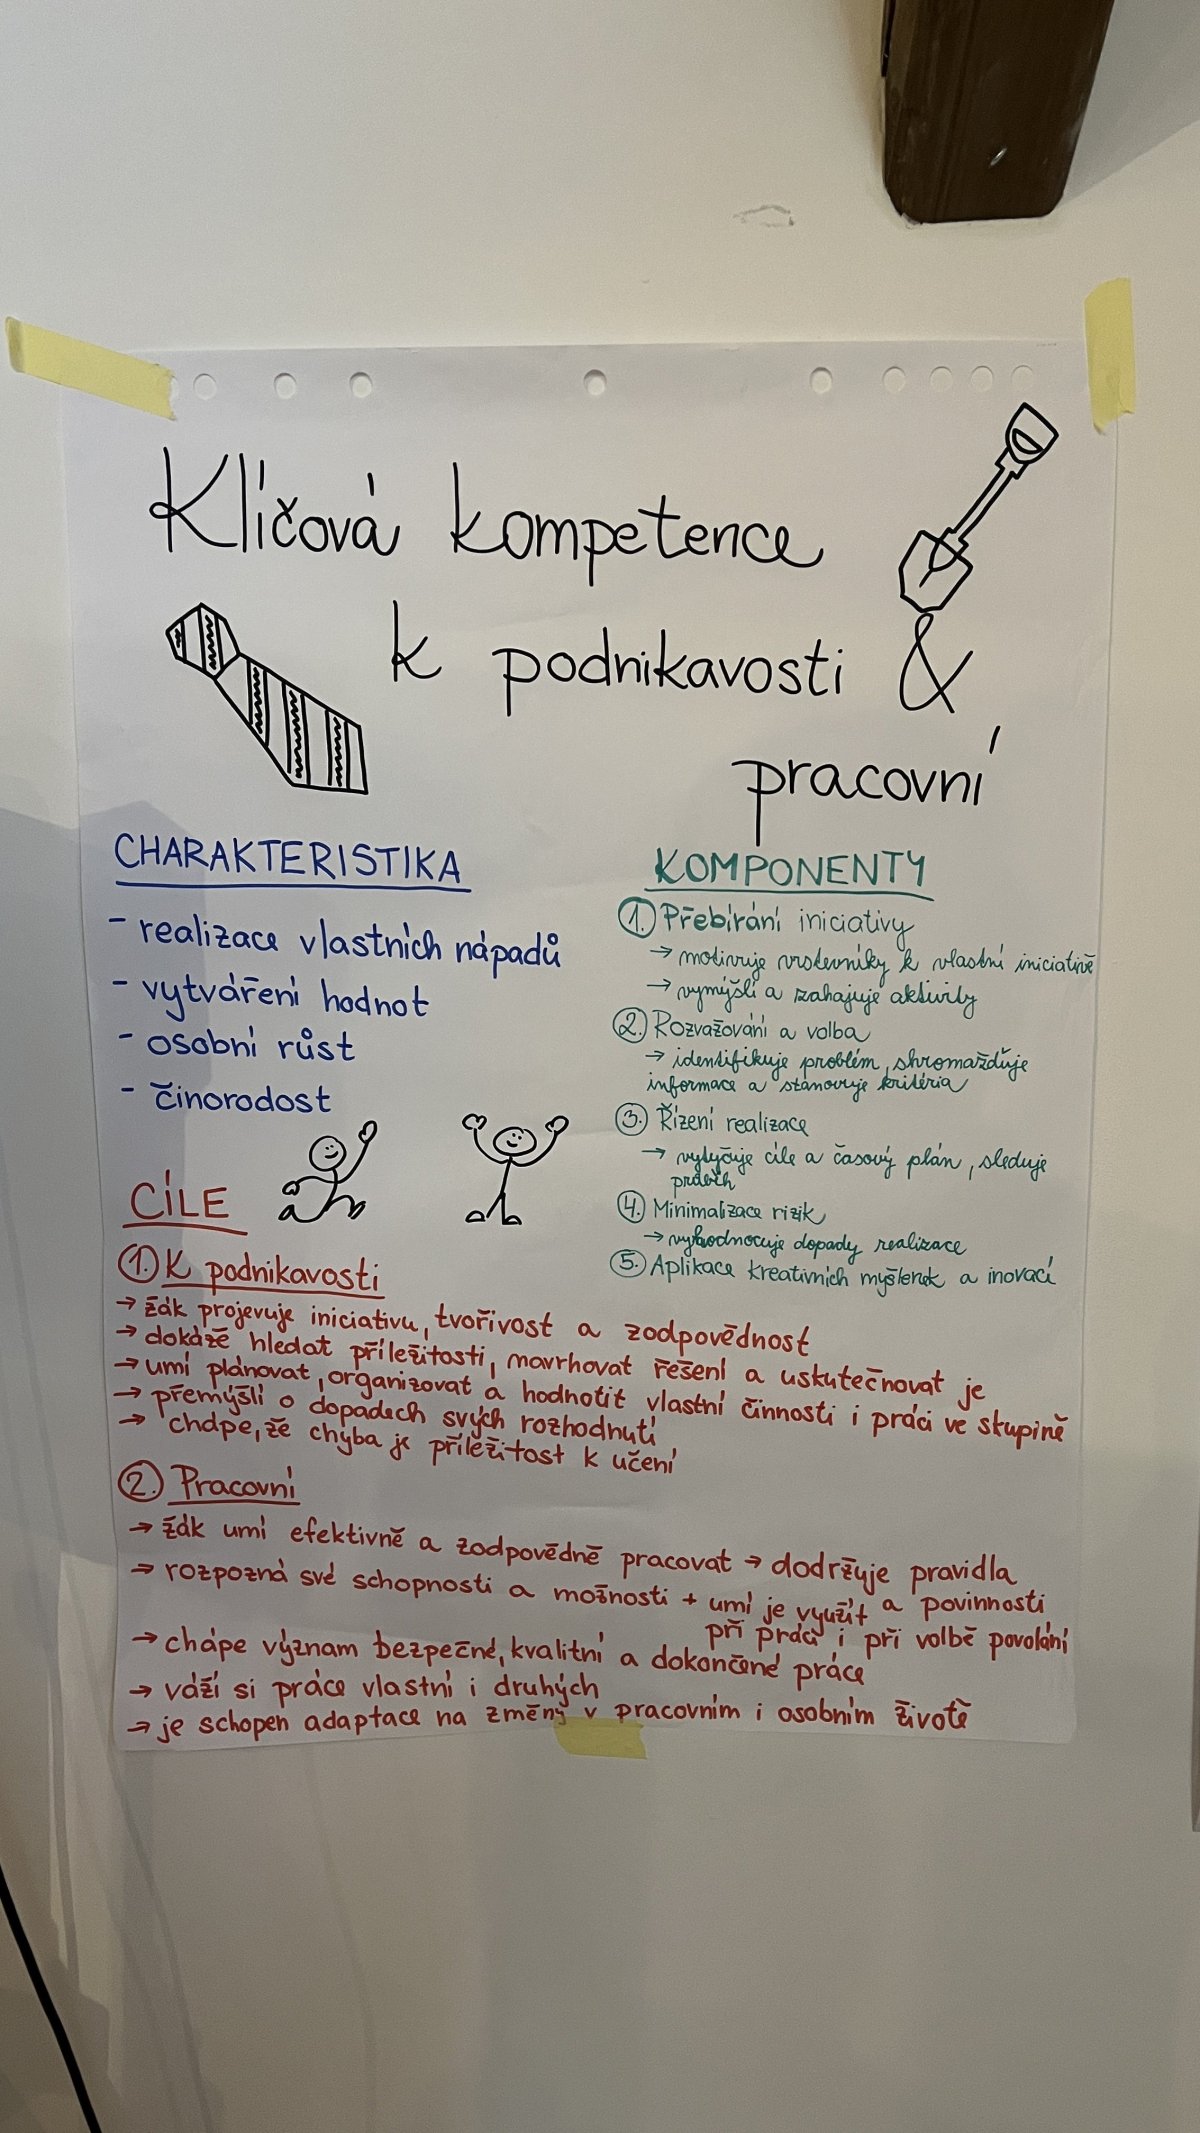 Klíčová kompetence
k podnikavosti &
pracovní
CHARAKTERISTIKA
- realizace vlastních nápadů
- vytváření hodnot
- osobní růst
- činorodost
KOMPONENTY
1. Přebírání iniciativy
→ motivuje vrstevníky k vlastní iniciativě
→ vymýšlí a zahajuje aktivity
2. Rozvažování a volba
→ identifikuje problém, shromažďuje
informace a stanovuje kritéria
3. Řízení realizace
→ vytyčuje cíle a časový plán, sleduje
průběh
4. Minimalizace rizik
→ vyhodnocuje dopady realizace
5. Aplikace kreativních myšlenek a inovací
CÍLE
1. K podnikavosti
→ žák projevuje iniciativu, tvořivost a zodpovědnost
→ dokáže hledat příležitosti, navrhovat řešení a uskutečňovat je
→ umí plánovat, organizovat a hodnotit vlastní činnosti i práci ve skupině
→ přemýšlí o dopadech svých rozhodnutí
→ chápe, že chyba je příležitost k učení
2. Pracovní
→ žák umí efektivně a zodpovědně pracovat → dodržuje pravidla
a povinnosti
→ rozpozná své schopnosti a možnosti + umí je využít
při práci i při volbě povolání
→ chápe význam bezpečné, kvalitní a dokončené práce
→ váží si práce vlastní i druhých
→ je schopen adaptace na změny v pracovním i osobním životě